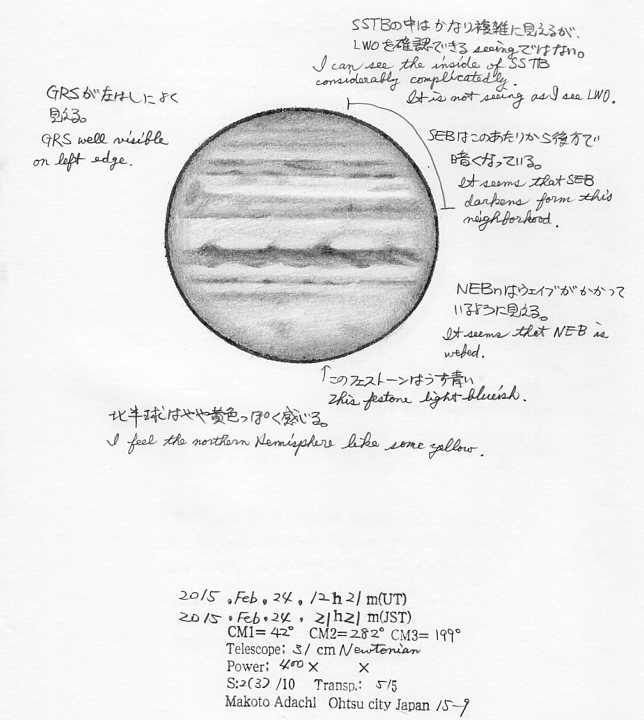 SSTBの中はかなり複雑に見えるが、
LWOを確認できるseeingではない。
I can see the inside of SSTB
considerably complicatedly.
It is not seeing as I see LWO.
GRSが左はしによく
見える。
GRS well visible
on left edge.
SEBはこのあたりから後方で
暗くなっている。
It seems that SEB
darkens form this
neighborhood.
NEBnはウェイブがかかって
いるように見える。
It seems that NEB is
weved.
↑このフェストーンはうす青い
This festone light blueish.
北半球はやや黄色っぽく感じる。
I feel the northern Hemisphere like some yellow.
2015.Feb.24.12h21m(UT)
2015.Feb.24.21h21m(JST)
CM1=42° CM2=282° CM3=199°
Telescope: 31cm Newtonian
Power: 400× ×
S:2(3)/10 Transp.: 5/5
Makoto Adachi Ohtsu city Japan 15-9